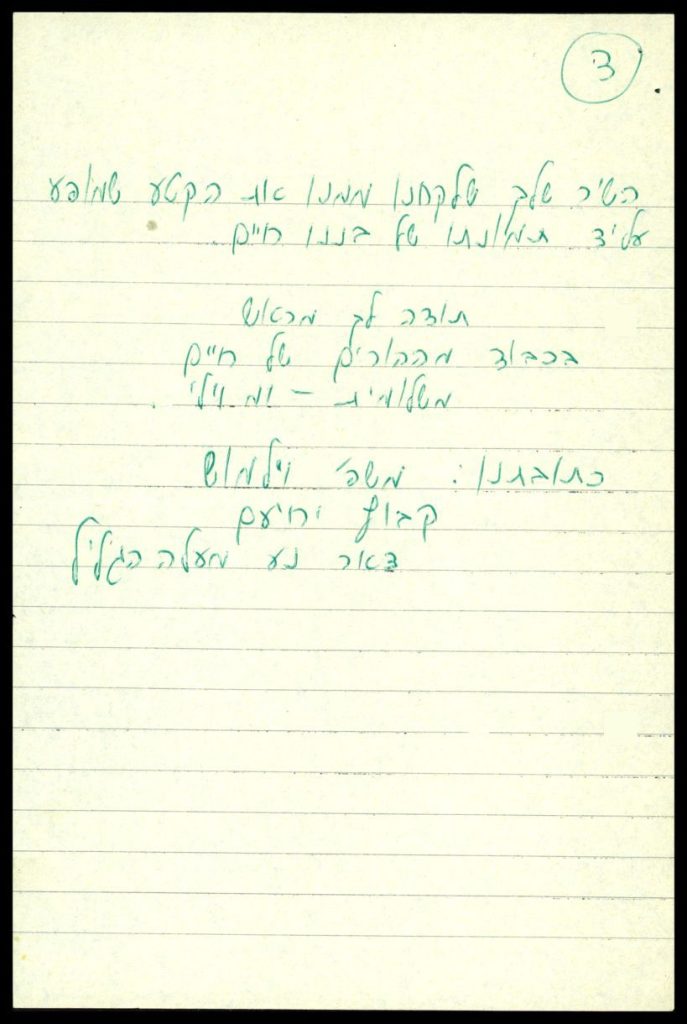 3
השיר שלך שלקחנו ממנו את הקטע שמופע
על יד תמונתו של בננו חיים.
תודה לך מראש
בכבוד מההורים של חיים
משלומית – ומוילי.
כתובתנו: משפ' וילמוש
קבוץ יחיעם
דאר נע מעלה הגליל